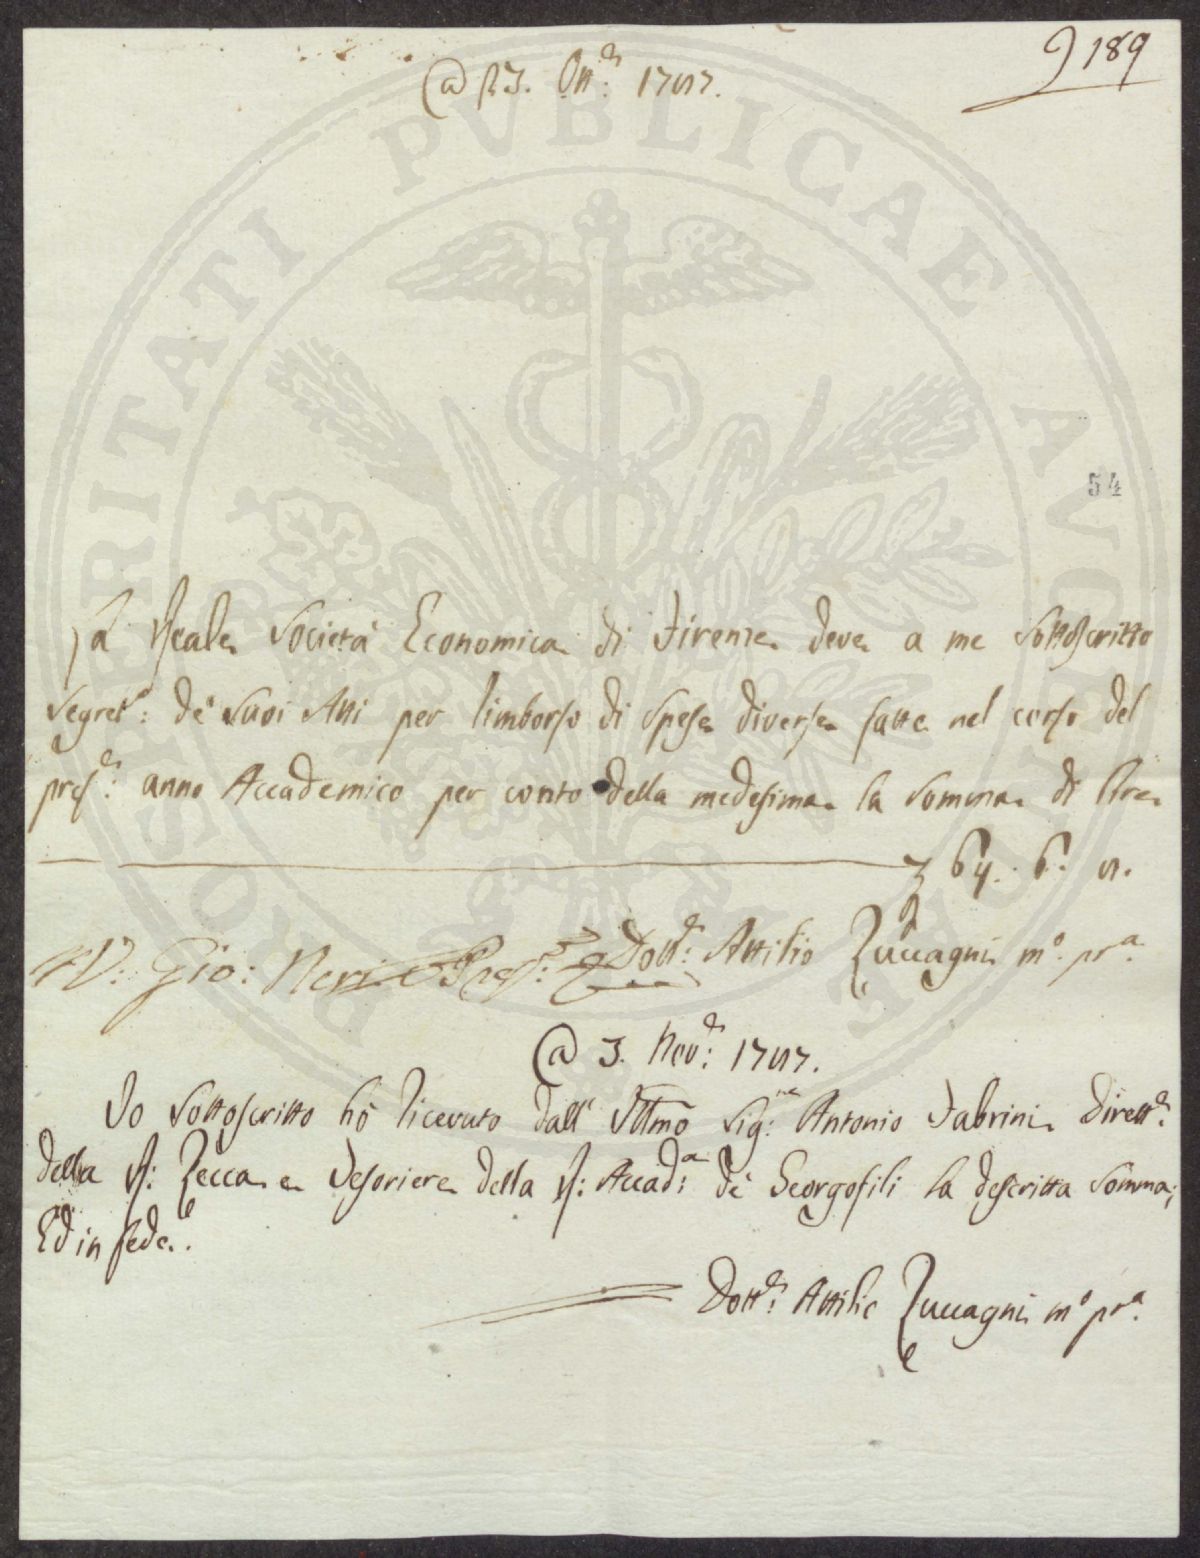 189
@ 23. Ott.e: 1787.
54
La Reale Società Economica di Firenze deve a me sottoscritto
Segret.o: de' suoi Atti per rimborso di spese diverse fatte nel corso del
pres.e: anno Accademico per conto della medesima la somma di lire
64. 6. 8.
V: Gio: Neri Pres.e: Dott.e: Attilio Zuccagni m.o pr.a
@ 3. Nov.e: 1787.
Io sottoscritto hò ricevuto dall' Ill͞mo Sig:re Antonio Fabrini Dirett.e:
della R: Zecca e Tesoriere della R: Accad:a de' Georgofili la descritta somma;
Ed in fede.
Dott.e: Attilio Zuccagni m.o pr.a
BRITATI PVBLICAE AVGE